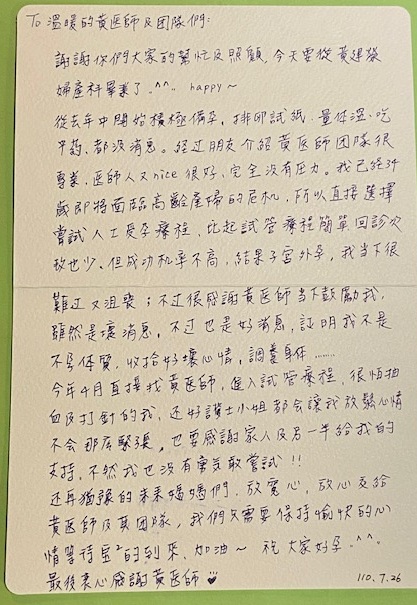 To 溫暖的黃醫師及團隊們:
謝謝你們大家的幫忙及照顧,今天要從黃建榮
婦產科畢業了.^^.. happy~
從去年中開始積極備孕,排卵試紙.量体溫.吃
中葯,都沒消息。經过朋友介紹黃医師團隊很
專業,医師人又nice很好,完全沒有压力。我已經34
歲即將面臨高齡產婦的危机,所以直接選擇
嘗試人工受孕療程,比起試管療程簡單回診次
數也少、但成功机率不高,結果子宮外孕,我當下很
難过又沮喪;不过很感謝黃医師當下鼓勵我,
雖然是壞消息,不过也是好消息,証明我不是
不孕体質,收拾好壞心情,調養身体……
今年4月直接找黃医師,進入試管療程,很怕抽
血及打針的我,还好護士小姐都会讓我放鬆心情
不会那麼緊張,也要感謝家人及另一半給我的
支持,不然我也沒有勇氣敢嘗試!!
还再猶豫的未來媽媽們,放寬心,放心交給
黃医師及其團隊,我們只需要保持愉快的心
情等待宝²的到來,加油~ 祝大家好孕.^^.
最後衷心感謝黃医師♥ 110.7.26